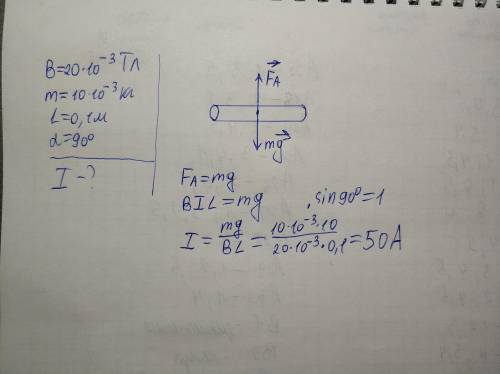 B=20·10⁻³ Тл
m=10·10⁻³ кг
L=0,1м
α=90°
I-?
F⃗A
mg⃗
FA=mg
BIL=mg , sin90°=1
I = mg/BL = 10·10⁻³·10/20·10⁻³·0,1 = 50A